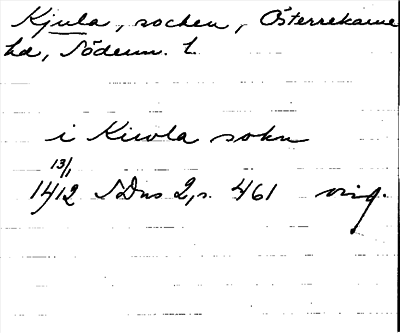 Kjula, socken, Österrekarne
hd, Söderm. l.
i Kiwla sokn
13/1
1412 SDns 2, s. 461 orig.